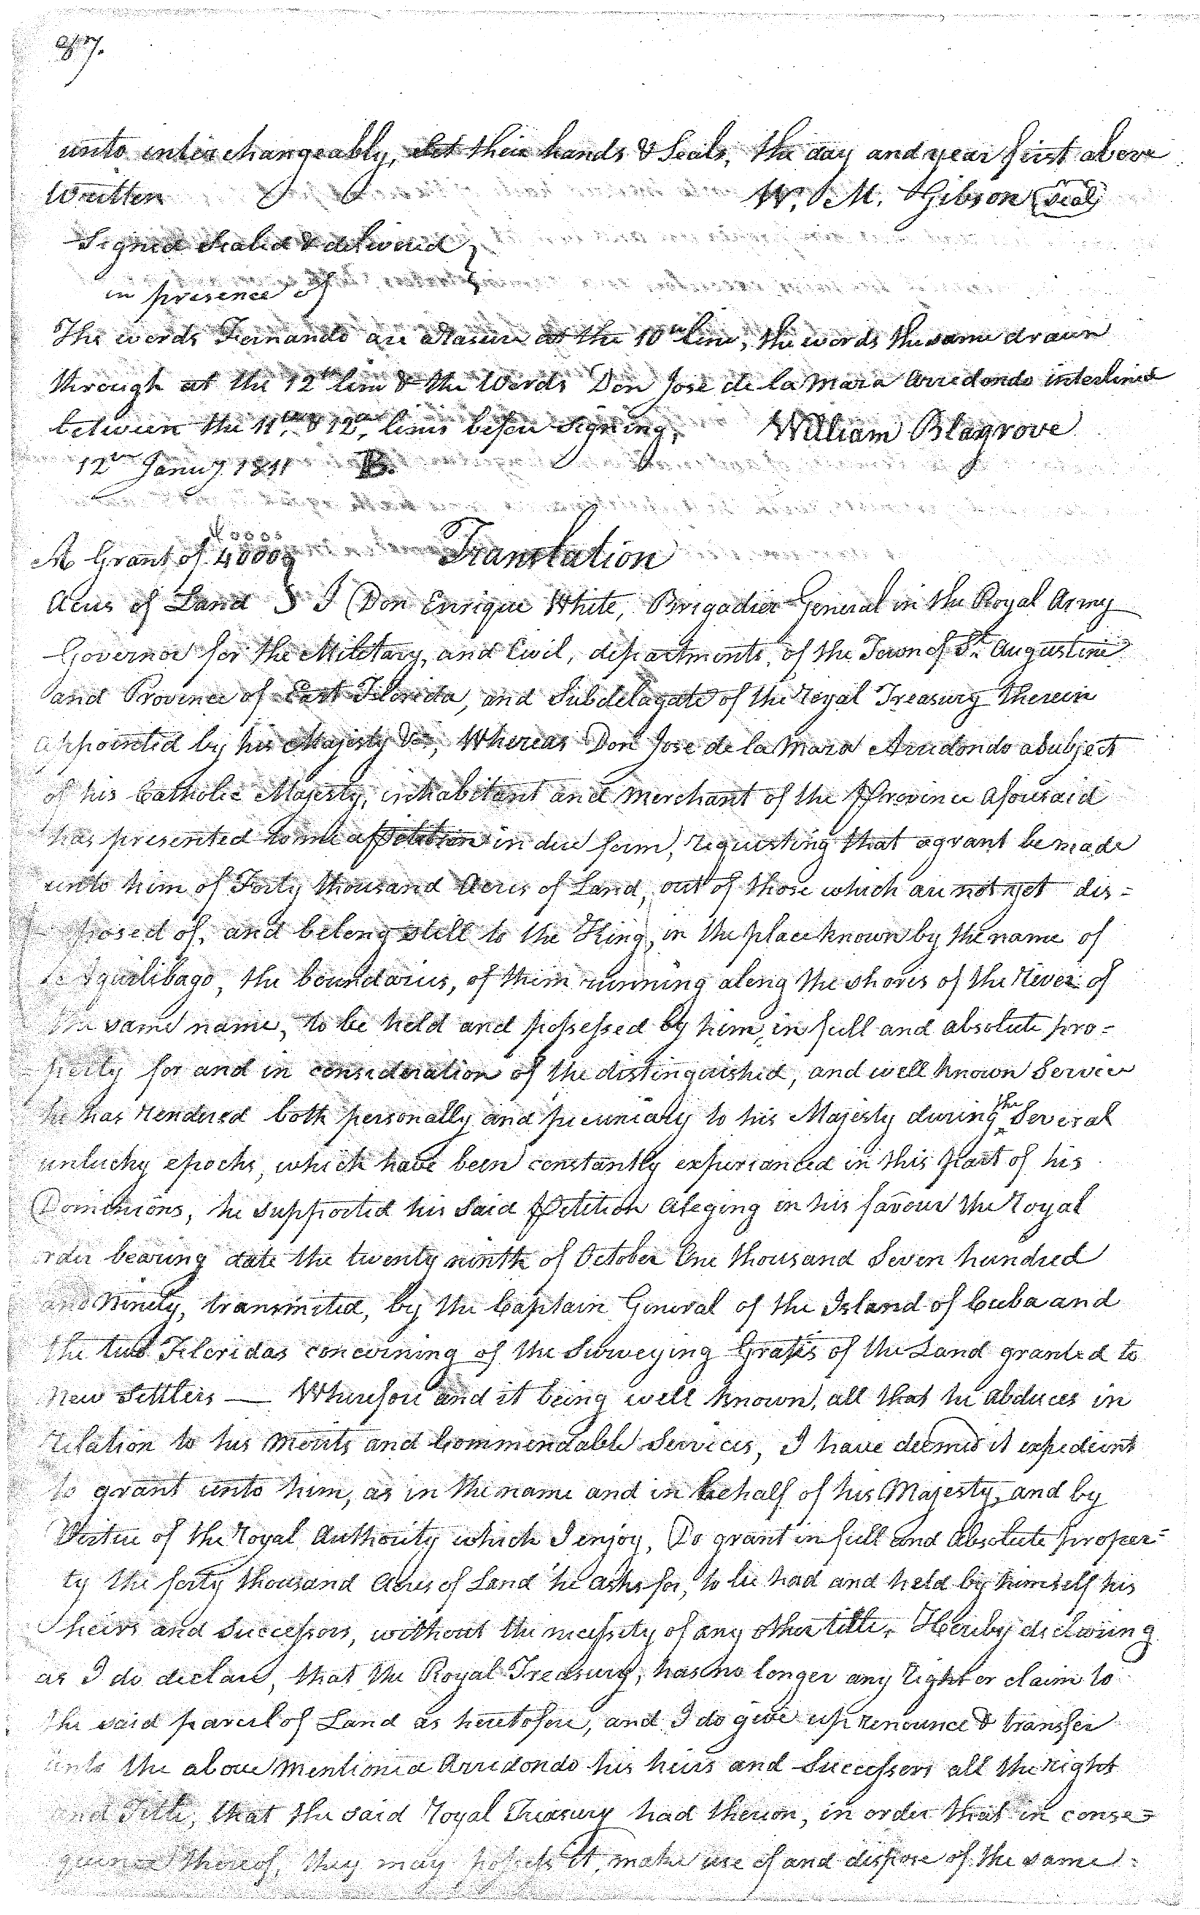 87.
unto interchangeably, set their hands & Seals, the day and year first above
Written W. M. Gibson (seal)
Signed Sealed & delivered }
in presence of
The words Fernando are erasure at the 10th line, the words the same drawn
through at the 12th line & the Words Don Jose de la Mara Arredondo interlined
between the 11th & 12th lines before signing, William Blagrove
12th Janry 1811 B.
40000
A Grant of 40000 } Translation
Acres of Land } I (Don Enrique White, Brigadier General in the Royal Army
Governor for the Military, and Civil, departments, of the Town of St. Augustine
and Province of East Florida, and Subdelegate of the royal Treasury therein
appointed by his Majesty &c, Whereas Don Jose de la Mara Arredondo a subject
of his Catholic Majesty, inhabitant and Merchant of the Province aforesaid
has presented to me a petition in due form, requesting that a grant be made
unto him of Forty thousand Acres of Land, out of those which are not yet dis=
posed of, and belong still to the King, in the place known by the name of
Aquilibago, the boundaries, of them running along the shores of the River of
the same name, to be held and possessed by him, in full and absolute pro=
perty for and in consideration of the distinguished, and well known Service
he has rendered both personally and pecuniary to his Majesty during the Several
unlucky epochs, which have been constantly experianced in this part of his
Dominions, he supported his said Petition aleging in his favour the royal
order bearing date the twenty ninth of October One thousand Seven hundred
and Ninety, transmited, by the Captain General of the Island of Cuba and
the two Floridas concerning of the Surveying Gratis of the Land granted to
new Settlers — Wherefore and it being well known, all that he abduces in
relation to his merits and Commendable Services, I have deemed it expedient
to grant unto him, as in the name and in behalf of his Majesty, and by
Virtue of the royal Authority which I enjoy, Do grant in full and absolute proper=
ty the forty thousand Acres of Land he asks for, to be had and held by himself his
heirs and Successors, without the necessity of any other title, Hereby declaring
as I do declare, that the Royal Treasury, has no longer any right or claim to
the said parcel of Land as heretofore, and I do give up renounce & transfer
unto the above Mentioned Arredondo his heirs and Successors all the right
and Title, that the said royal Treasury had thereon, in order that in conse=
quence thereof, they may possess it, make use of and dispose of the same